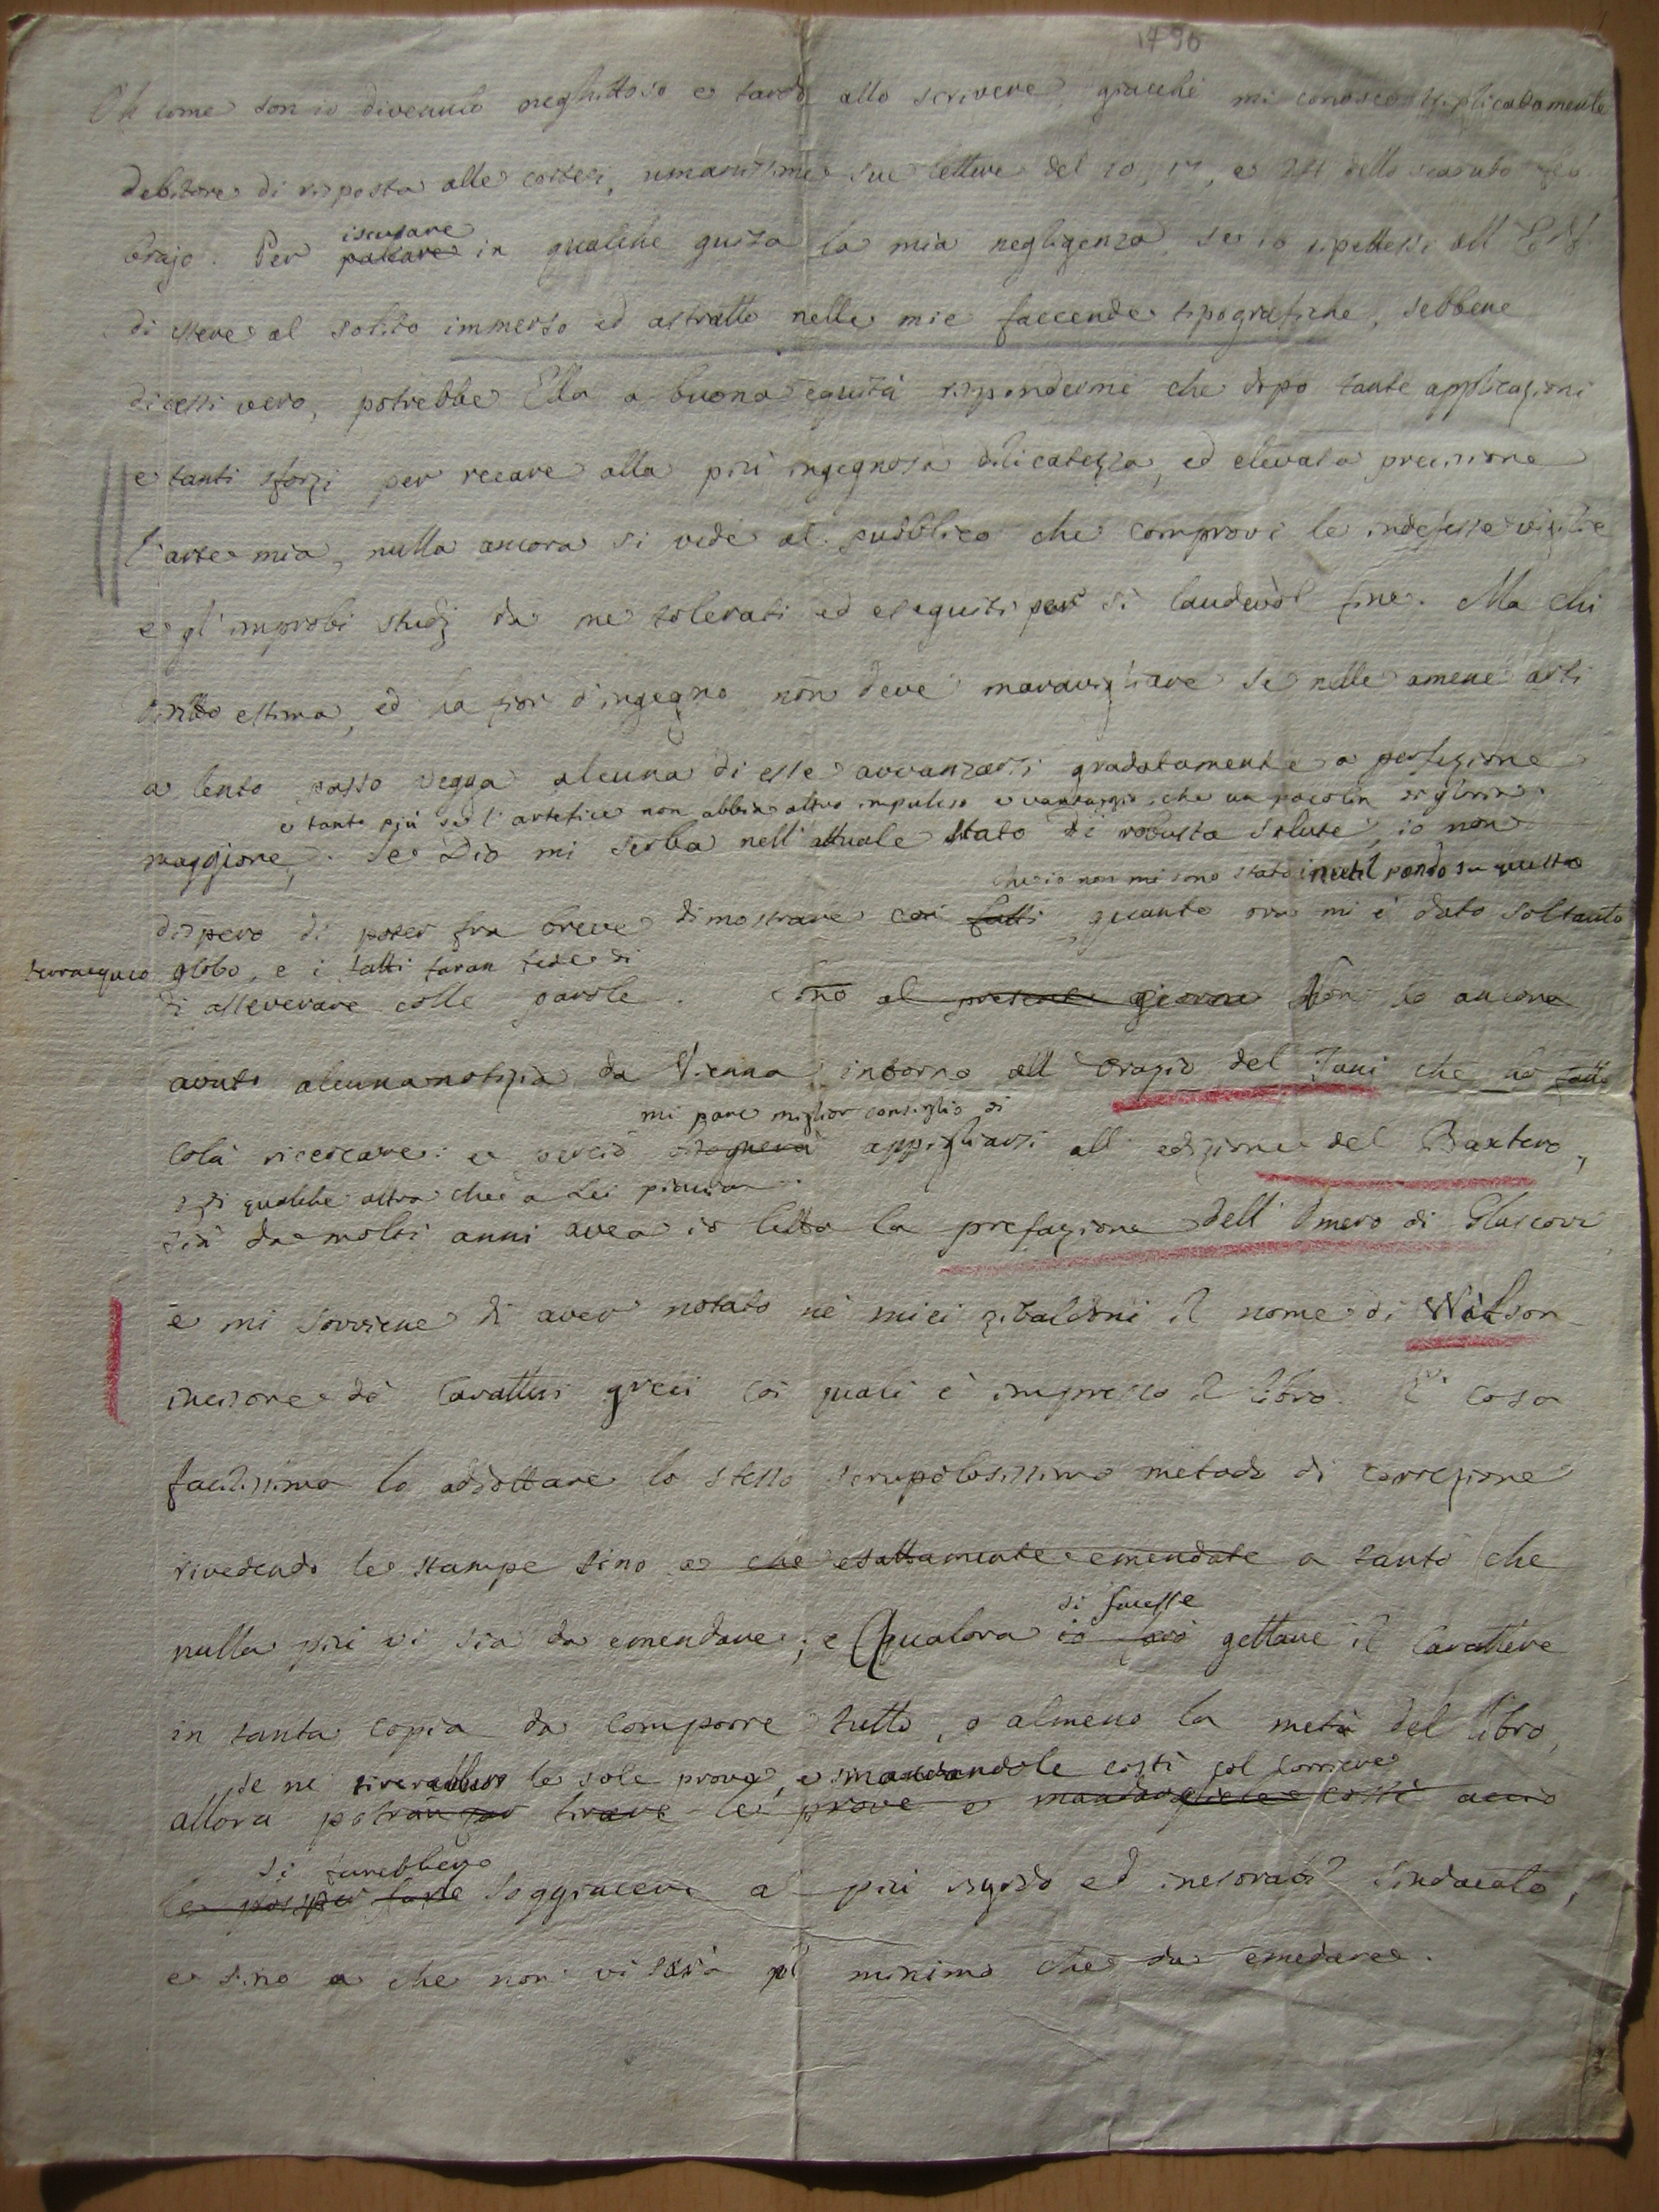 1790
Oh come son io divenuto neghittoso e tardo allo scrivere, giacchè mi conosco triplicatamente
debitore di risposta alle cortesi, umanissime sue lettere del 10, 17, e 24 dello scaduto feb
brajo. Per palliare in qualche guisa la mia negligenza, se io ripetessi all'
iscusare
di essere al solito immerso ed astratto nelle mie faccende tipografiche, sebbene
dicessi vero, potrebbe Ella a buona equità rispondermi che dopo tante applicazioni
e tanti sforzi per recare alla più ingegnosa dilicatezza, ed elevata precisione
l'arte mia, nulla ancora si vede al pubblico che comprovi le indefesse vigilie
e gl'improbi studj da me tolerati ed eseguiti per sì laudevol fine. Ma chi
dritto estima, ed ha fior d'ingegno non deve maravigliare se nelle amene arti
a lento passo vegga alcuna di esse avvanzarsi gradatamente a perfezione
e tanto più se l'artefice non abbia altro impulso e vantaggio, che un pocolin di gloria.
maggiore; Se Dio mi serba nell'attuale stato di robusta salute, io non
che io non mi sono stato inutil pondo su questo
dispero di poter fra breve dimostrare coi fatti quanto ora mi è dato soltanto
terraqueo globo, e i fatti faran fede di
di asseverare colle parole. Sino al presente giorno Non ho ancora
avuto alcuna notizia da Vienna intorno all'Orazio del Jani che ho fatto
mi pare miglior consiglio di
colà ricercare: e perciò bisognerà appigliarsi all'edizione del Baxtero,
o di qualche altra che a Lei piaccia.
Già da molti anni avea io letto la prefazione dell'Omero di Glascovi
e mi sovviene di aver notato ne' miei zibaldoni il nome di Wilson
incisore de' caratteri greci coi quali è impresso il libro. È cosa
facilissima lo addottare lo stesso scrupolosissimo metodo di correzione
rivedendo le stampe sino a che esattamente emendate a tanto che
nulla più vi sia da emendare; e Qualora io farò gettare il carattere
si facesse
in tanta copia da comporre tutto, o almeno la metà del libro,
se ne tirerebber le sole prove, e mandandole costì col corriere
allora potran per tirare le prove e mandargliele costì acciò
si farebbero
le possa far soggiacere a' più rigido ed inesorabil sindacato,
e sino a che non vi sarà il minimo che da emedare.